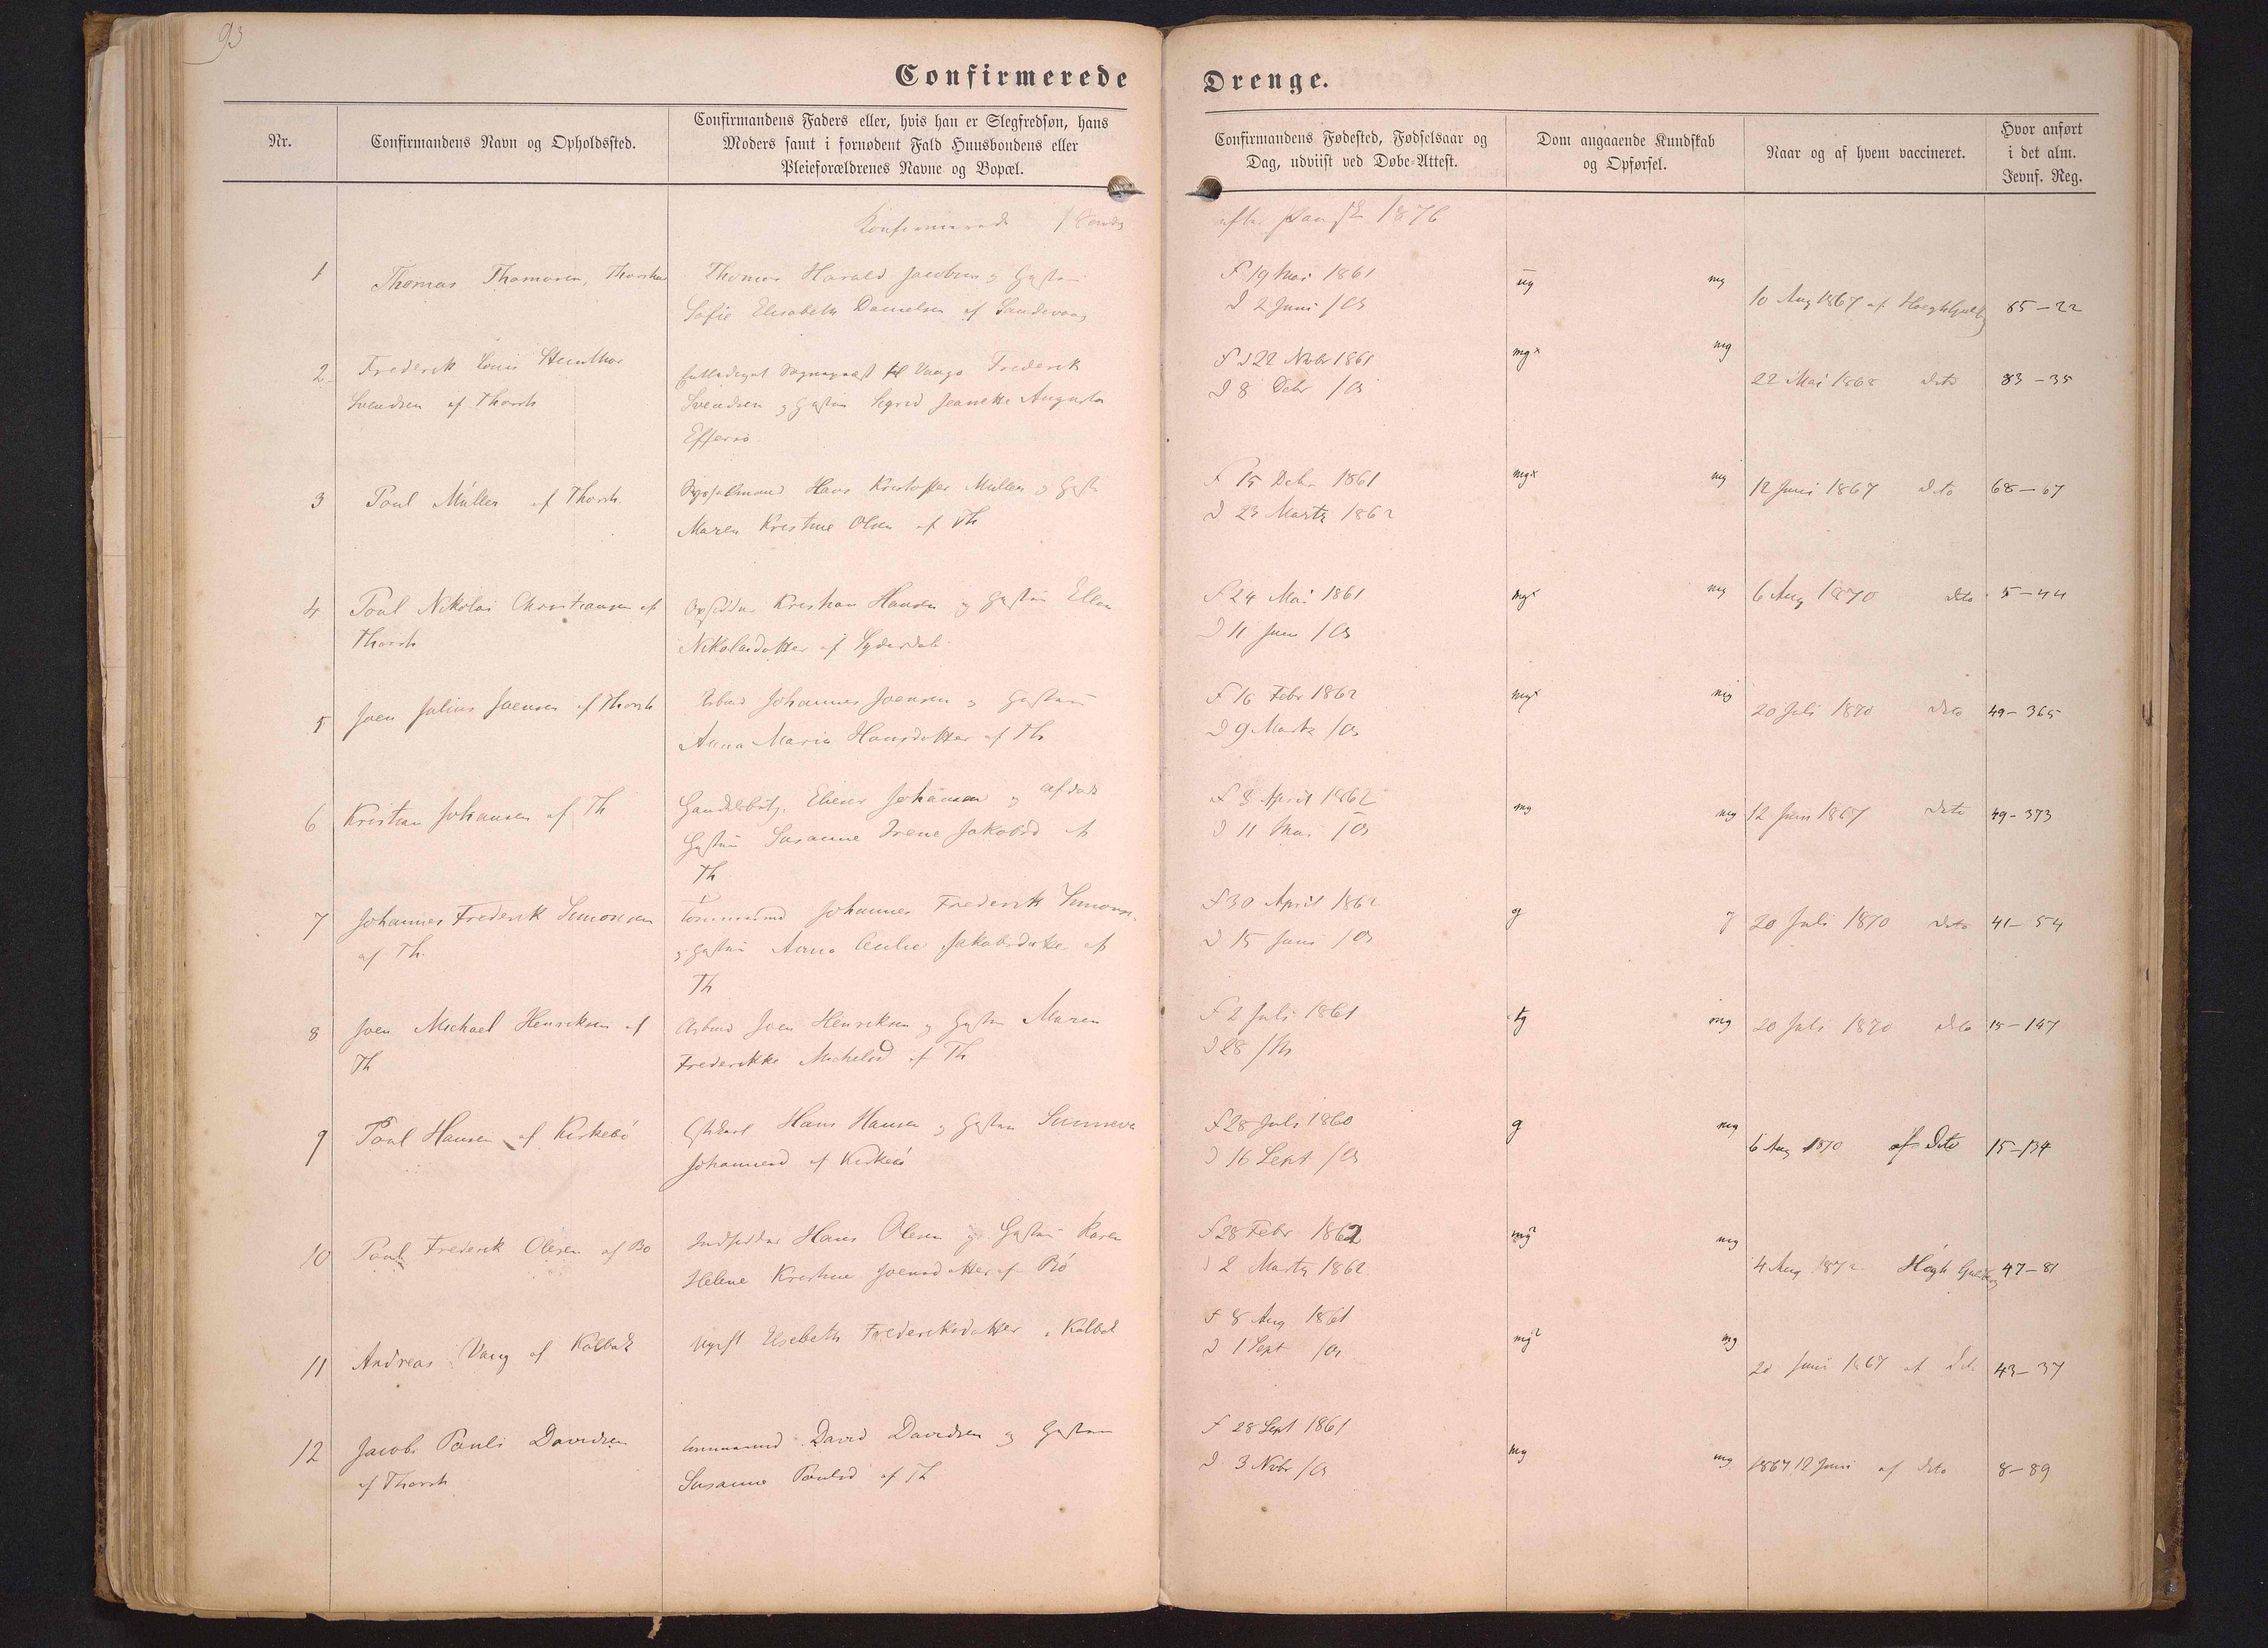 93
Confirmerede Drenge.
Nr.
Confirmandens Navn og Opholdssted.
Confirmandens Faders eller, hvis han er Slegfredsøn, hans
Moders samt i fornødent Fald Huusbondens eller
Pleieforældrenes Navne og Bopæl.
Confirmandens Fødested, Fødselsaar og
Dag, udviist ved Døbe-Attest.
Dom angaaende Kundskab
og Opførsel.
Naar og af hvem vaccineret.
Hvor anført
i det alm.
Jevnf. Reg.
1876
1
Thomas Thomasen,
Thomas Harald Jacobsen og
Sofie Elisabeth Danielsen af Sandevaag
F 19 Mai 1861
D 2 Juni
ug mg
10 Aug 1867 af
85-22
2
Frederik Louis
Svendsen af Thorsh
Sognepræst til Vaagø Frederik
Svendsen og Hustru Sigrid Jeanette Augusta
Effersø
22 Novbr 1861
D 8 Debr
mg× mg
22 Mai 1868 dito
83-35
3
Poul Müller af Thorsh
Sysselmand Hans Kristoffer Müller og
Maren Kristine Olsen af Th
F 15 Debr 1861
D 23 Marts 1862
mg× mg
12 Juni 1867 dito
68-67
4
Poul Nikolai Christiansen af
Thorsh
Kristian Hansen og Hustru Ellen
Nikolaidatter af
F 24 Mai 1861
D 11 Juni
mg× mg
6 Aug 1870 dito
5-44
5
Joen Julius Joensen af Thorsh
Johannes Joensen og Hustru
Anna Maria Hansdatter af Th
F 16 Febr 1862
D 9 Marts
mg× mg
20 Juli 1870 dito
49-365
6
Kristian Johansen af Th
Johansen og afdøde
Hustru Susanne Irene Jakobsd af
Th
F 8 April 1862
D 11 Mai
mg mg
12 Juni 1867 dito
49-373
7
Johannes Frederik Simonsen
af Th.
Tømmermd Johannes Frederik Simonsen
og Hustru Anna Jakobsdatter af
Th
F 30 April 1862
D 15 Juni
g g
20 Juli 1870 dito
41-54
8
Joen Michael Henriksen af
Th
Joen Henriksen og Hustru Maren
Frederikke Michelsd af Th
F 2 Juli 1861
D 28
tg mg
20 Juli 1870 dito
15-147
9
Poul Hansen af Kirkebø
Hans Hansen og Hustru Sunneva
Johannesd af Kirkebø
F 28 Juli 1860
D 16 Sept
g mg
6 Aug 1870 af dito
15-134
10
Poul Frederik Olesen af Bø
Indsidder Hans Olesen og Hustru Karen
Helene Kristine Joensdatter af Bø
F 28 Febr 1862
D 2 Marts 1862
mg mg
4 Aug 1872 Høgh
47-81
11
Andreas Vang af Kolbak
Ugift Elsebeth Frederiksdatter i Kolbak
F 8 Aug 1861
D 1 Sept
mg mg
20 Juni 1867 af dito
43-37
12
Jacob Pauli Davidsen
af Thorsh
David Davidsen og Hustru
Susanne Poulsd af Th
F 28 Sept 1861
D 3 Novbr
mg mg
1867 12 Juni af dito
8-89